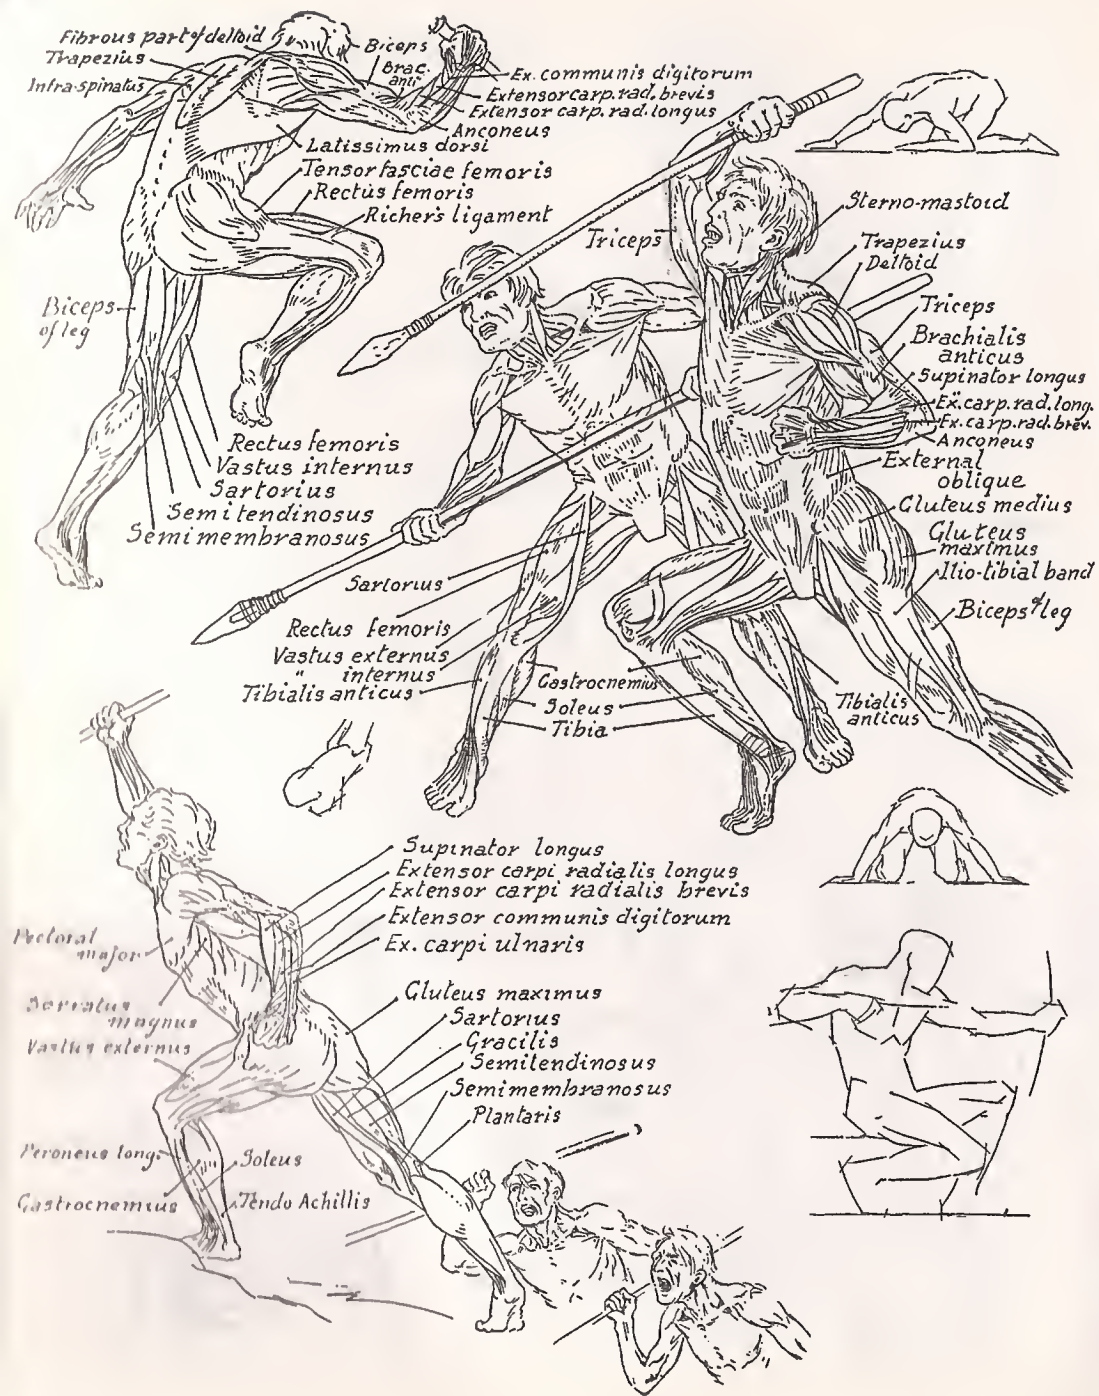 Fibrous part of deltoid
Trapezius
Infra-spinatus
Biceps
Brac.
anti
Ex. communis digitorum
Extensor carp. rad. brevis
Extensor carp. rad. longus
Anconeus
Latissimus dorsi
Tensor fasciae femoris
Rectus femoris
Richer's ligament
Biceps
of leg
Rectus femoris
Vastus internus
Sartorius
Semitendinosus
Semimembranosus
Triceps
Sterno-mastoid
Trapezius
Deltoid
Triceps
Brachialis
anticus
Supinator longus
Ex. carp. rad. long.
Ex. carp. rad. brev.
Anconeus
External
oblique
Gluteus medius
Gluteus
maximus
Ilio-tibial band
Biceps of leg
Sartorius
Rectus femoris
Vastus externus
" internus
Tibialis anticus
Gastrocnemius
Soleus
Tibia
Tibialis
anticus
Supinator longus
Extensor carpi radialis longus
Extensor carpi radialis brevis
Extensor communis digitorum
Ex. carpi ulnaris
Pectoral
major
Serratus
magnus
Vastus externus
Gluteus maximus
Sartorius
Gracilis
Semitendinosus
Semimembranosus
Plantaris
Peroneus long.
Soleus
Gastrocnemius
Tendo Achillis